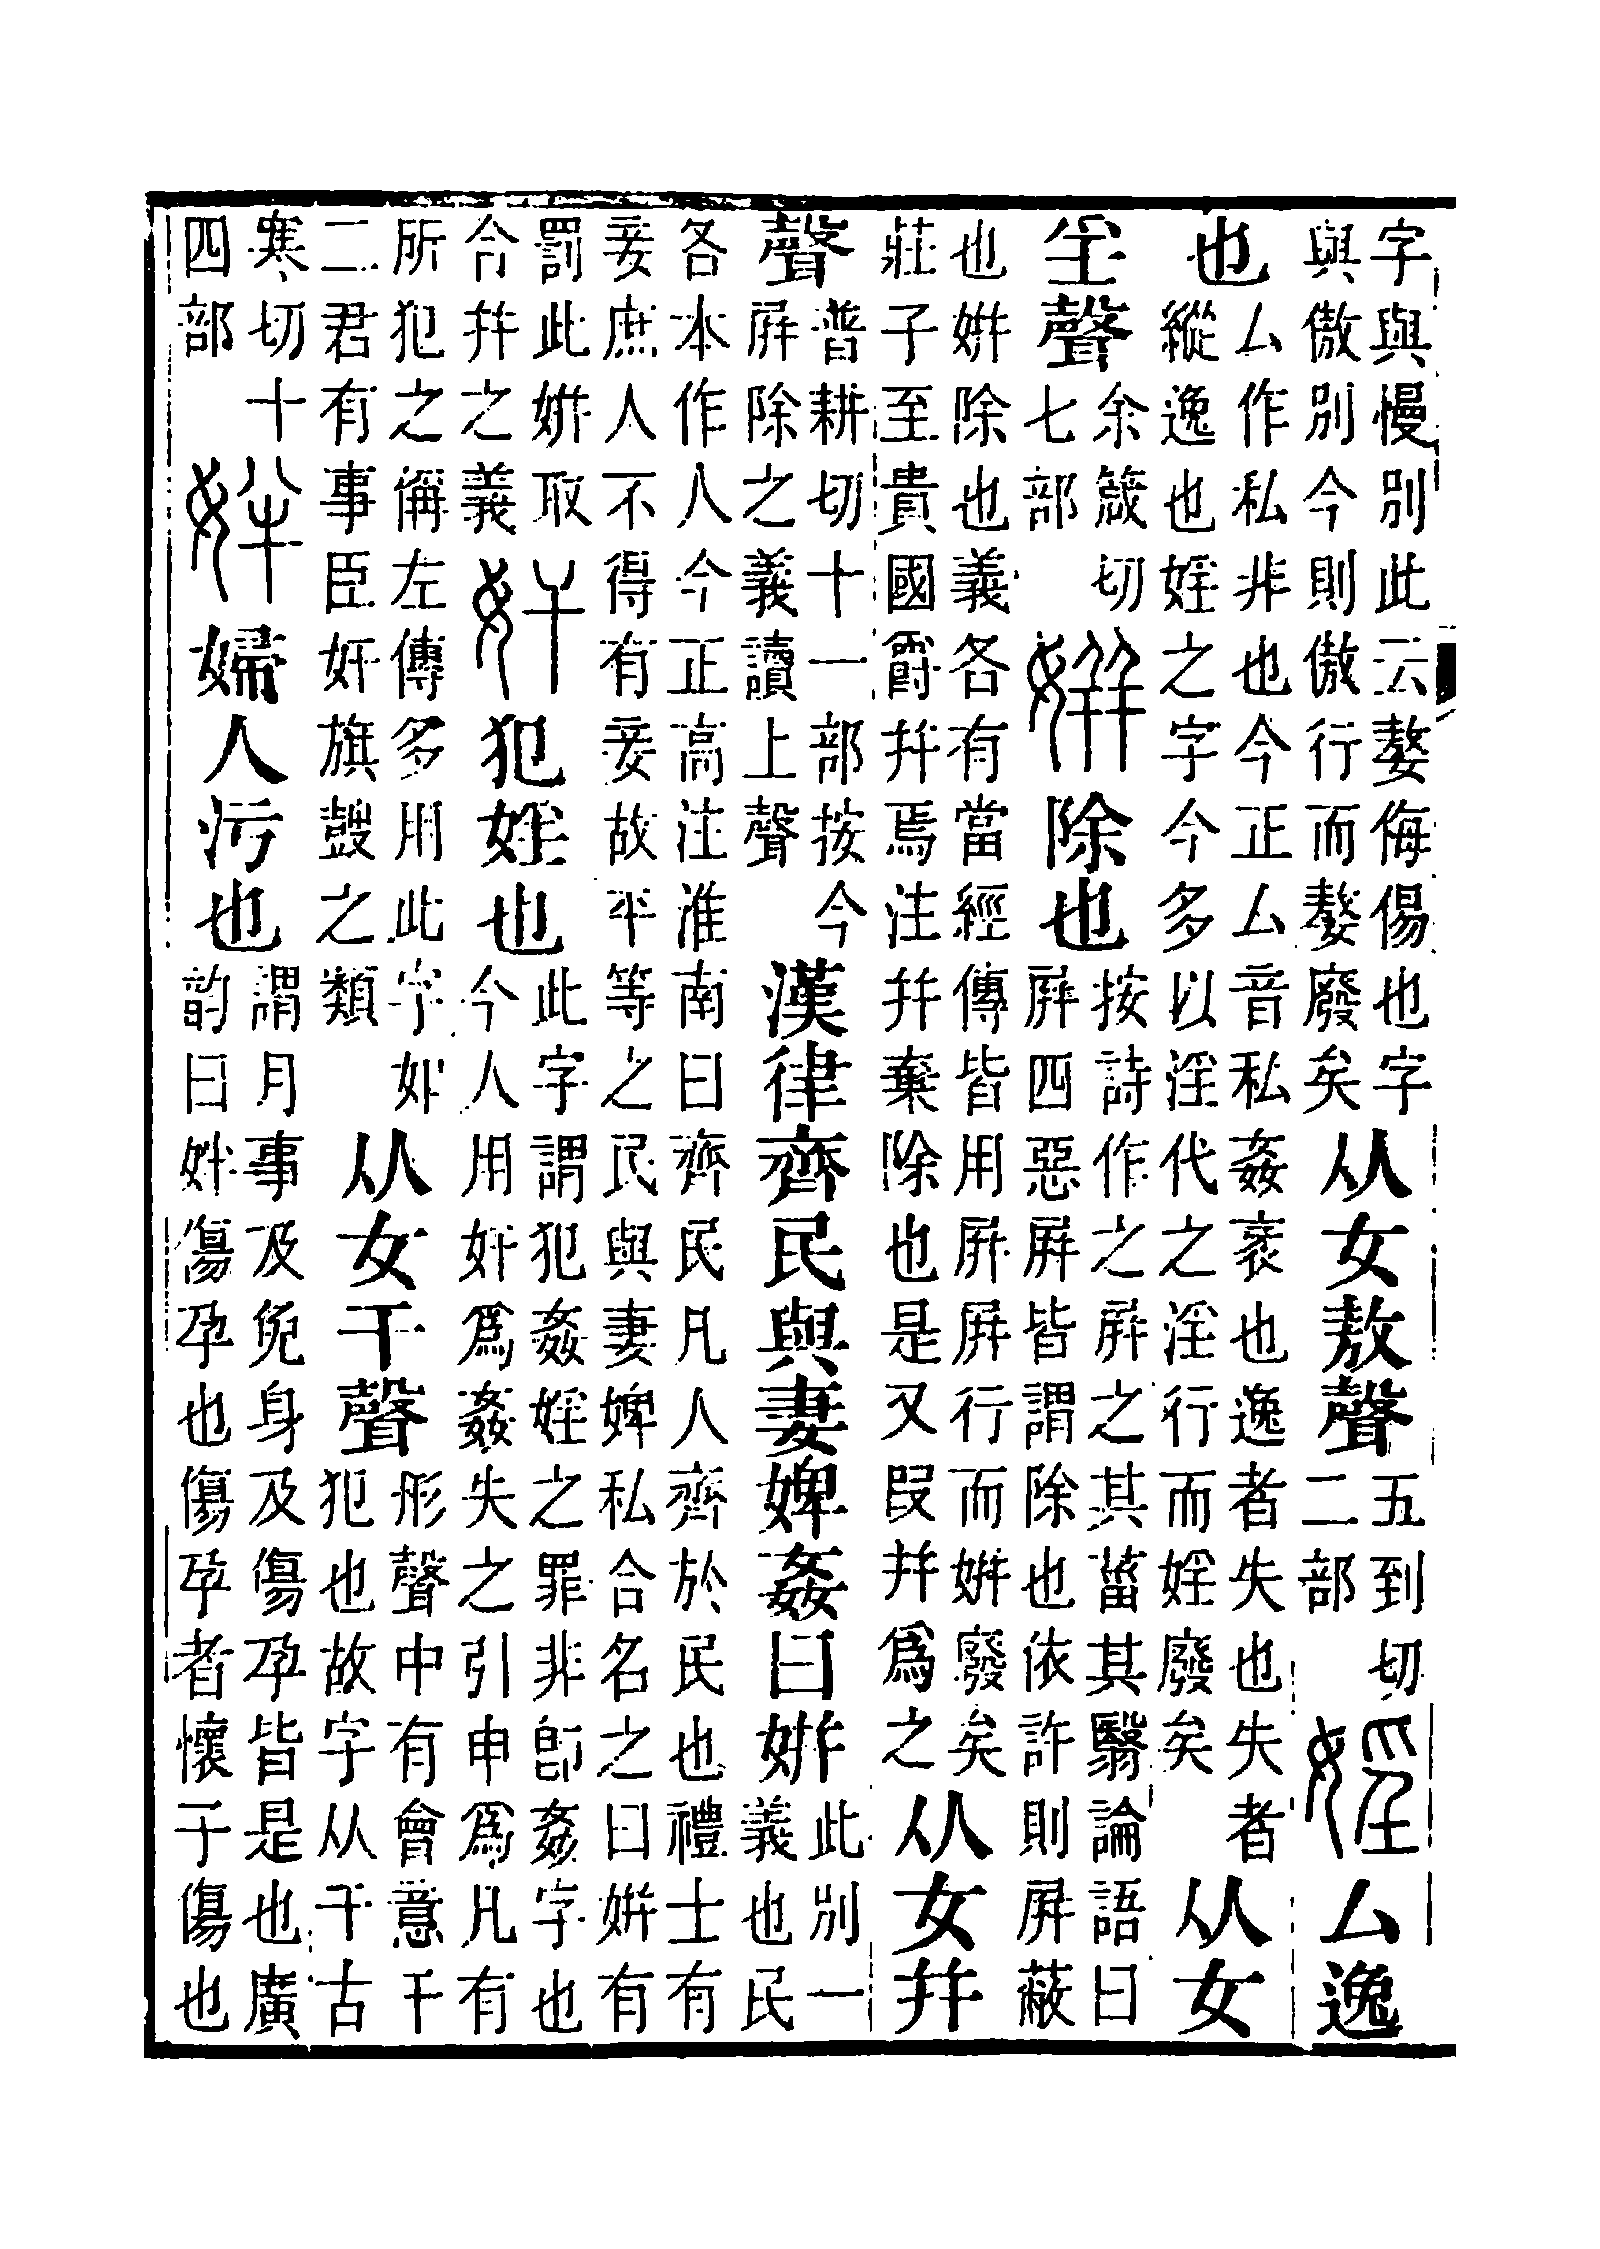 字與慢別此云嫯侮㑥也字
與傲別今則傲行而嫯廢矣
从女敖聲
五到切
二部
婬
厶逸
也
厶作私非也今正厶音私姦衺也逸者失也失者
縱逸也婬之字今多以淫代之淫行而婬廢矣
从女
㸒聲
余箴切
七部
姘
除也
按詩作之屛之其菑其翳論語曰
屛四惡屛皆謂除也依許則屛蔽
也姘除也義各有當經傳皆用屛屛行而姘廢矣
莊子至貴國爵幷焉注幷棄除也是又叚幷爲之
从女幷
聲
普耕切十一部按今
屛除之義讀上聲
漢律齊民與妻婢姦曰姘
此別一
義也民
各本作人今正高注淮南曰齊民凡人齊於民也禮士有
妾庶人不得有妾故平等之民與妻婢私合名之曰姘有
罰此姘取
合幷之義
奸
犯婬也
此字謂犯姦婬之罪非卽姦字也
今人用奸爲姦失之引申爲凡有
所犯之偁左傳多用此字如
二君有事臣奸旗鼓之類
从女干聲
形聲中有會意干
犯也故字从干古
寒切十
四部
姅
婦人污也
謂月事及免身及傷孕皆是也廣
韵曰姅傷孕也傷孕者懷子傷也